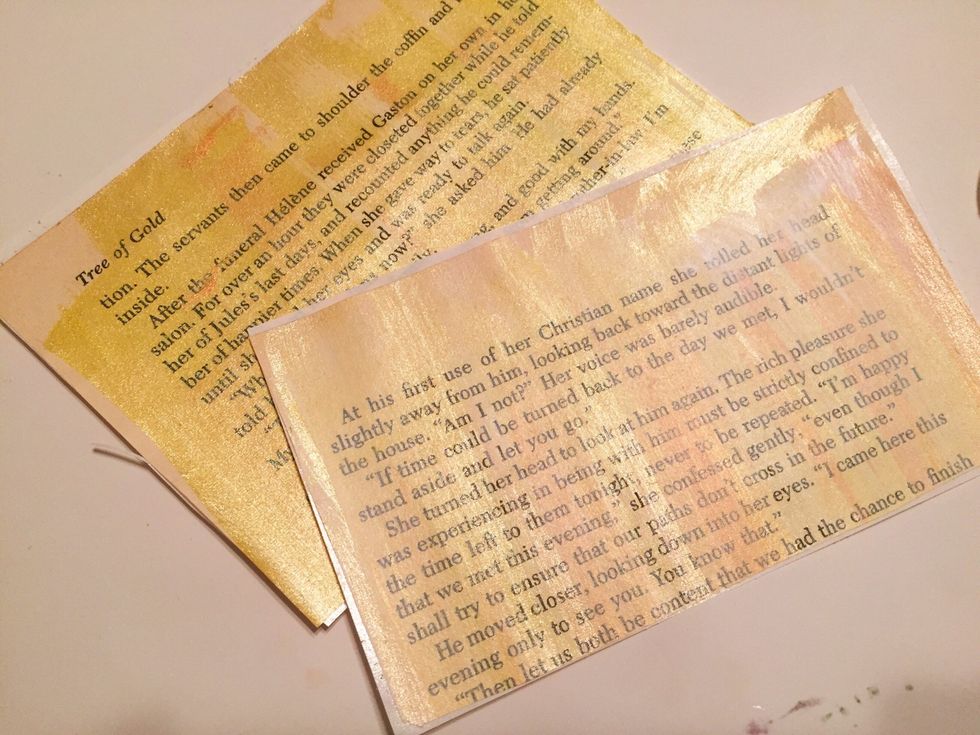 Tree of Gold
tion. The servants then came to shoulder the coffin and
inside.
After the funeral Hélène received Gaston on her own in
salon. For over an hour they were closeted together while he told
her of Jules's last days, and recounted anything he could remem-
ber of happier times. When she gave way to tears, he sat patiently
until she her eyes and was ready to talk again.
now?" she asked him. He had already
told
and good with my hands.
getting around."
I'm
these
At his first use of her Christian name she rolled her head
slightly away from him, looking back toward the distant lights of
the house. "Am I not?" Her voice was barely audible.
"If time could be turned back to the day we met, I wouldn't
stand aside and let you go."
She turned her head to look at him again. The rich pleasure she
was experiencing in being with him must be strictly confined to
the time left to them tonight, never to be repeated. "I'm happy
that we met this evening," she confessed gently, "even though I
shall try to ensure that our paths don't cross in the future."
He moved closer, looking down into her eyes. "I came here this
evening only to see you. You know that."
"Then let us both be content that we had the chance to finish